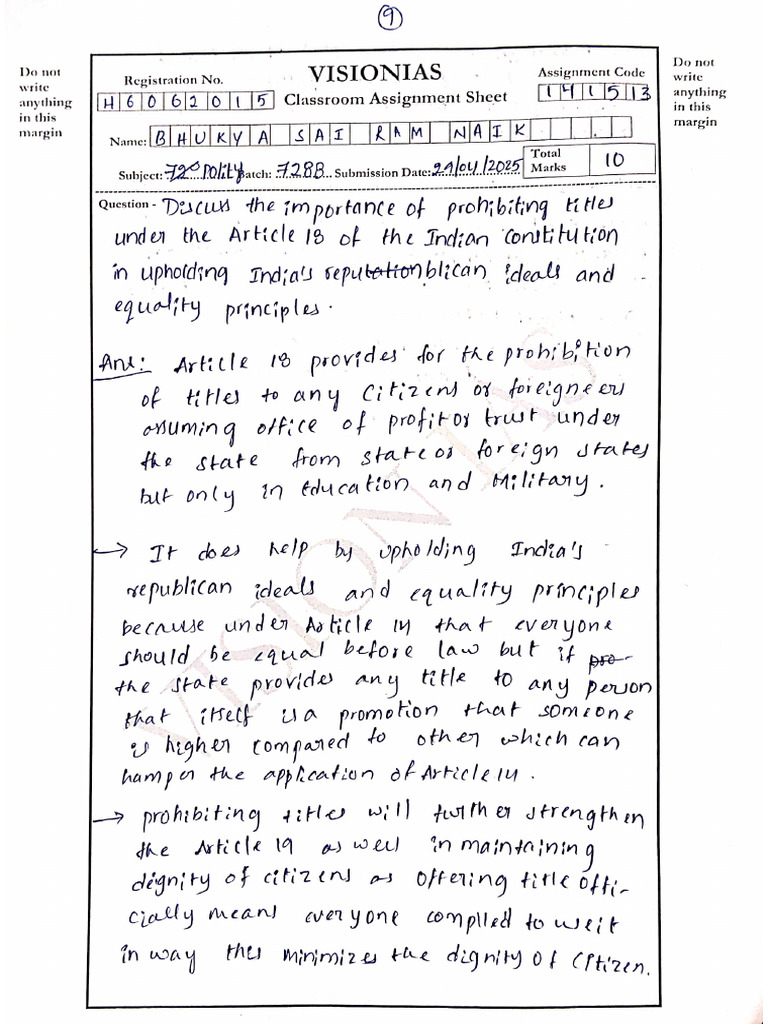 9
Do not
write
anything
in this
margin
Registration No.
H6062015
VISIONIAS
Classroom Assignment Sheet
Assignment Code
141513
Do not
write
anything
in this
margin
Name: BHUKYA SAI RAM NAIK
Subject: Polity Batch: 7288 Submission Date: 29/04/2025
Total Marks 10
Question - Discuss the importance of prohibiting titles
under the Article 18 of the Indian Constitution
in upholding India's reputationblican ideals and
equality principles.
Ans: Article 18 provides for the prohibition
of titles to any Citizens or foreigneers
assuming office of profit or trust under
the state from state or foreign states
but only in Education and Military.
→ It does help by upholding India's
republican ideals and equality principles
because under Article 14 that everyone
should be equal before law but if pro-
the state provides any title to any person
that itself is a promotion that someone
is higher compared to other which can
hamper the application of Article 14.
→ prohibiting titles will further strengthen
the Article 19 as well in maintaining
dignity of citizens as offering title offi-
cially means everyone complled to use it
in way this minimizes the dignity of Citizen.
VISION IAS